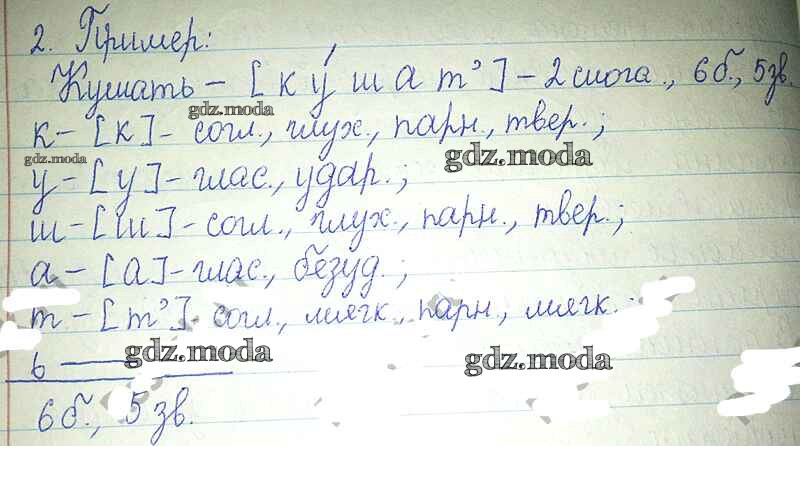 2. Пример:
Кушать – [к у́ ш а т'] – 2 слога., 6б., 5зв.
gdz.moda
к – [к] – согл., глух., парн., твер.;
gdz.moda gdz.moda
у – [у] – глас., удар.;
ш – [ш] – согл., глух., парн., твер.;
а – [а] – глас., безуд.;
т – [т'] – согл., мягк., парн., мягк.;
ь ———
gdz.moda gdz.moda
6б., 5зв.